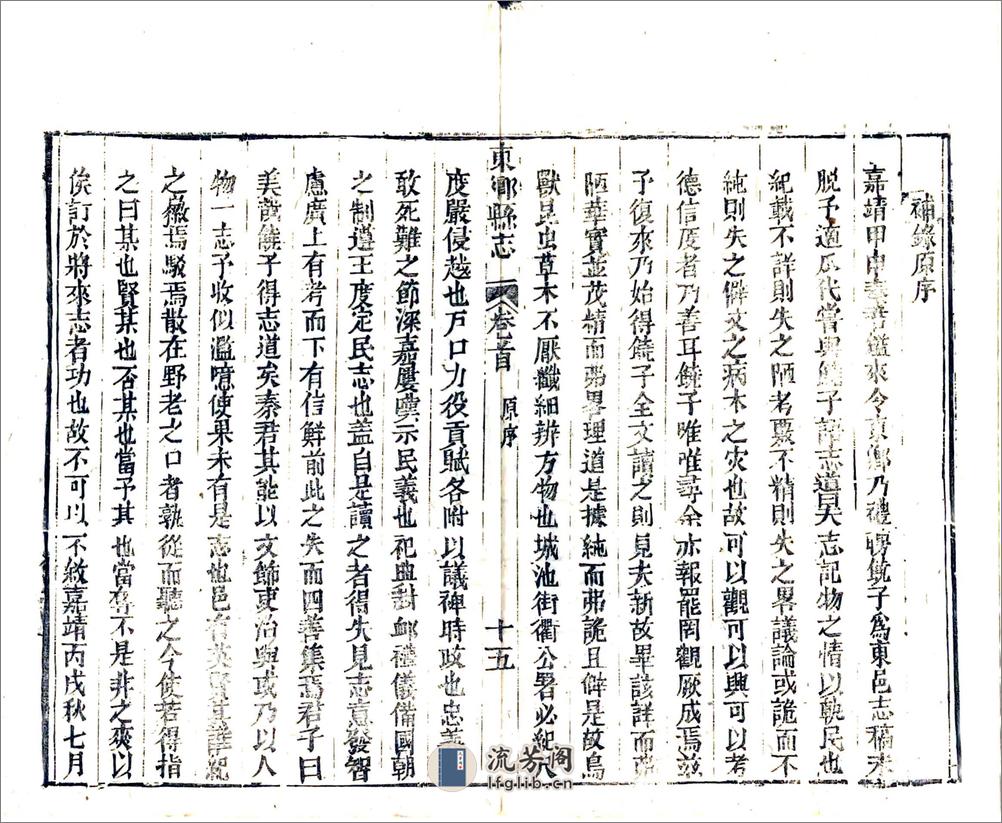 補錄原序
嘉靖甲申秦君鎰來令東鄉乃禮聘饒子為東邑志稿未
脫予適瓜代嘗與饒子語志道曰夫志記物之情以軌民也
紀載不詳則失之陋考覈不精則失之畧議論或詭而不
純則失之僻文之病木之灾也故可以觀可以興可以考
德信度者乃善耳饒子唯唯尋余亦報罷罔觀厥成焉兹
予復來乃始得饒子全文讀之則見夫新故畢該詳而弗
陋華實並茂精而弗畧理道是據純而弗詭且僻是故鳥
獸昆虫草木不厭纖細辨方物也城池街衢公署必紀
東鄉縣志
卷之首
原序
十五
度嚴侵越也戸口力役貢賦各附以議裨時政也忠
敢死難之節深嘉屢嘆示民義也祀典對䘏禮儀備國朝
之制遵王度定民志也盖自是讀之者得失見志意發智
慮廣上有考而下有信鮮前此之失而四善集焉君子曰
美哉饒子得志道矣秦君其能以文飾吏治與或乃以人
物一志予收似濫噫使果未有是志也邑有英賢其譁紀
之徽焉駁焉散在野老之口者孰從而聽之今使若得指
之曰某也賢某也否某也當予其也當奪不是非之爽以
俟訂於將來志者功也故不可以不敘嘉靖丙戌秋七月
流芳阁
lfglib.cn